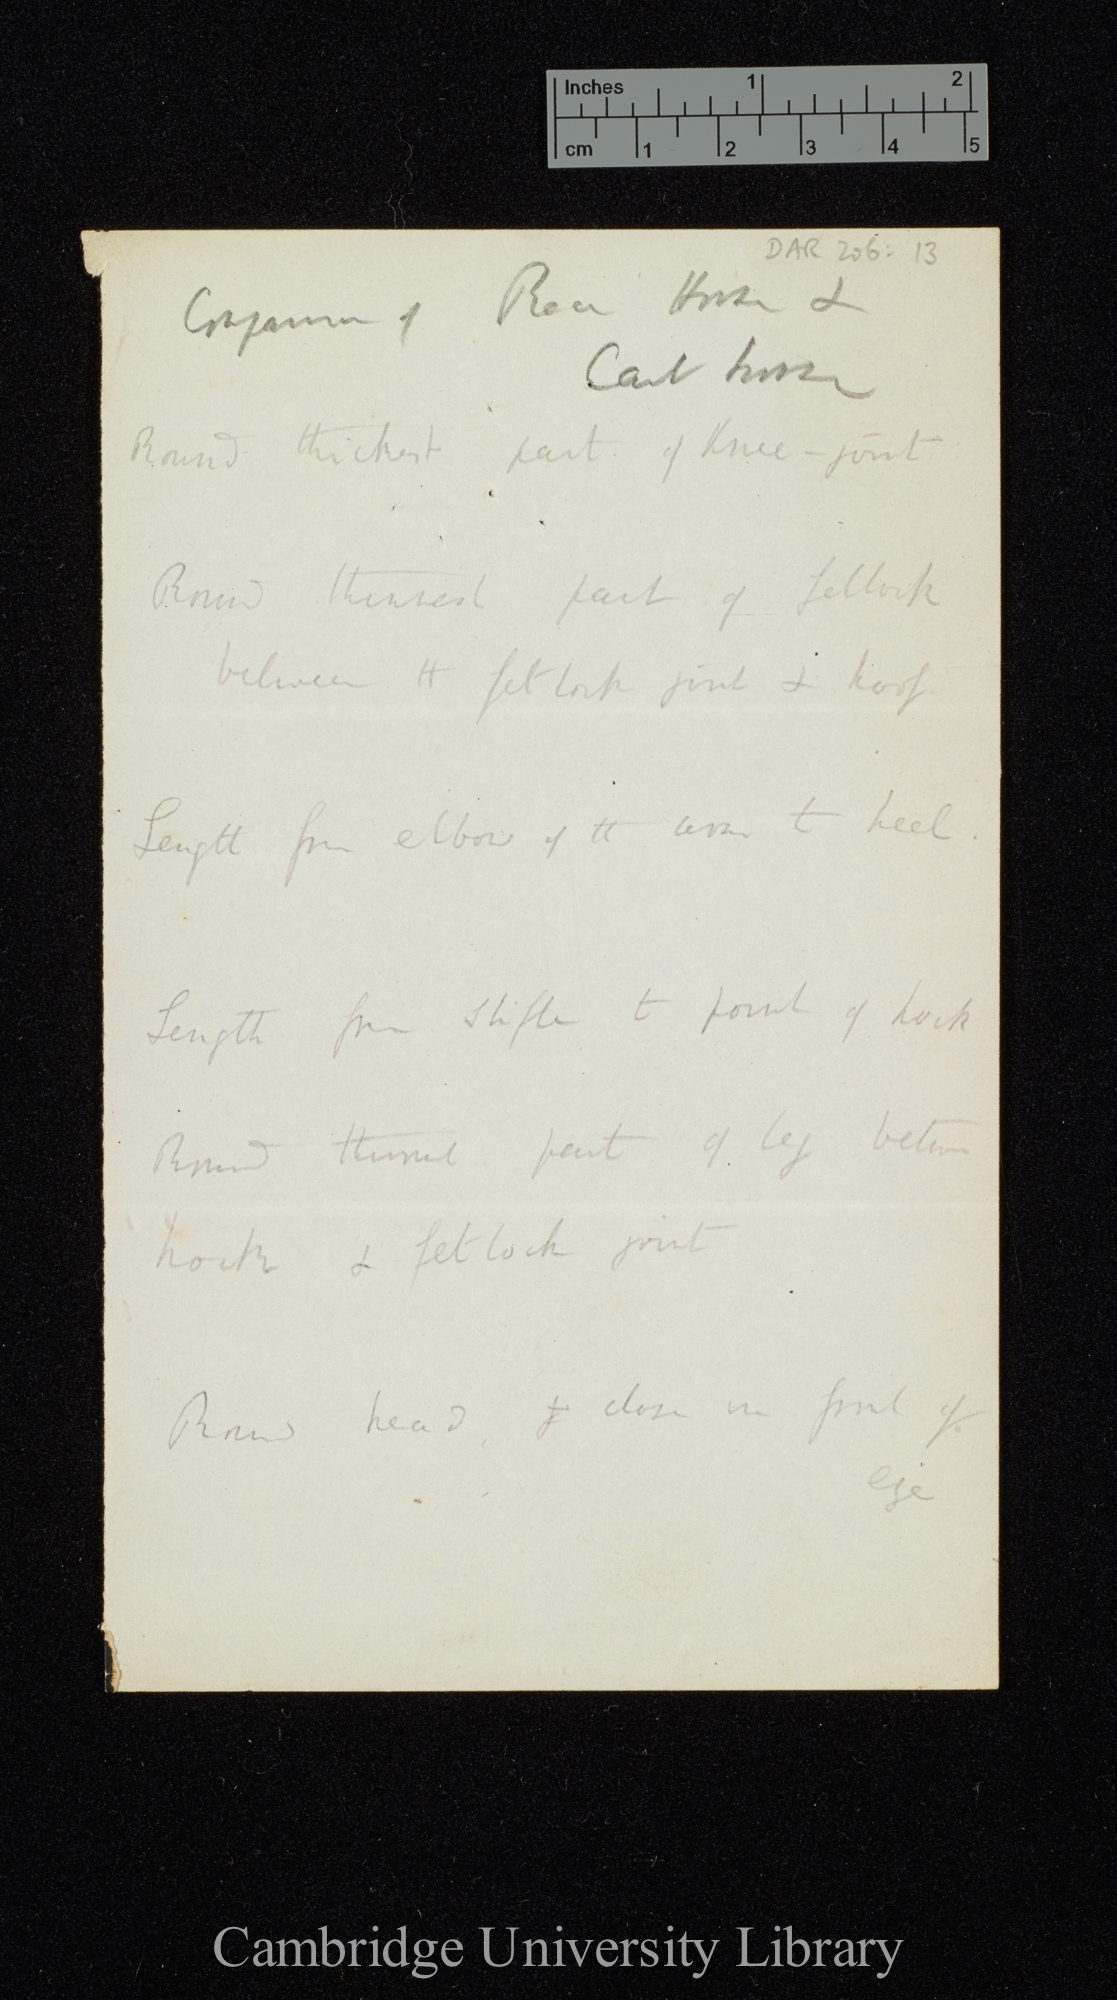 Inches 1 2
cm 1 2 3 4 5
DAR 206: 13
Comparison of Race Horse &
Cart horse
Round thickest part of Knee-joint
Round thinnest part of fetlock
between the fetlock joint & hoof
Length from elbow of the to heel.
Length from stifle to point of hock
Round thinnest part of leg between
hock & fetlock joint
Round head, close in front of
eye
Cambridge University Library